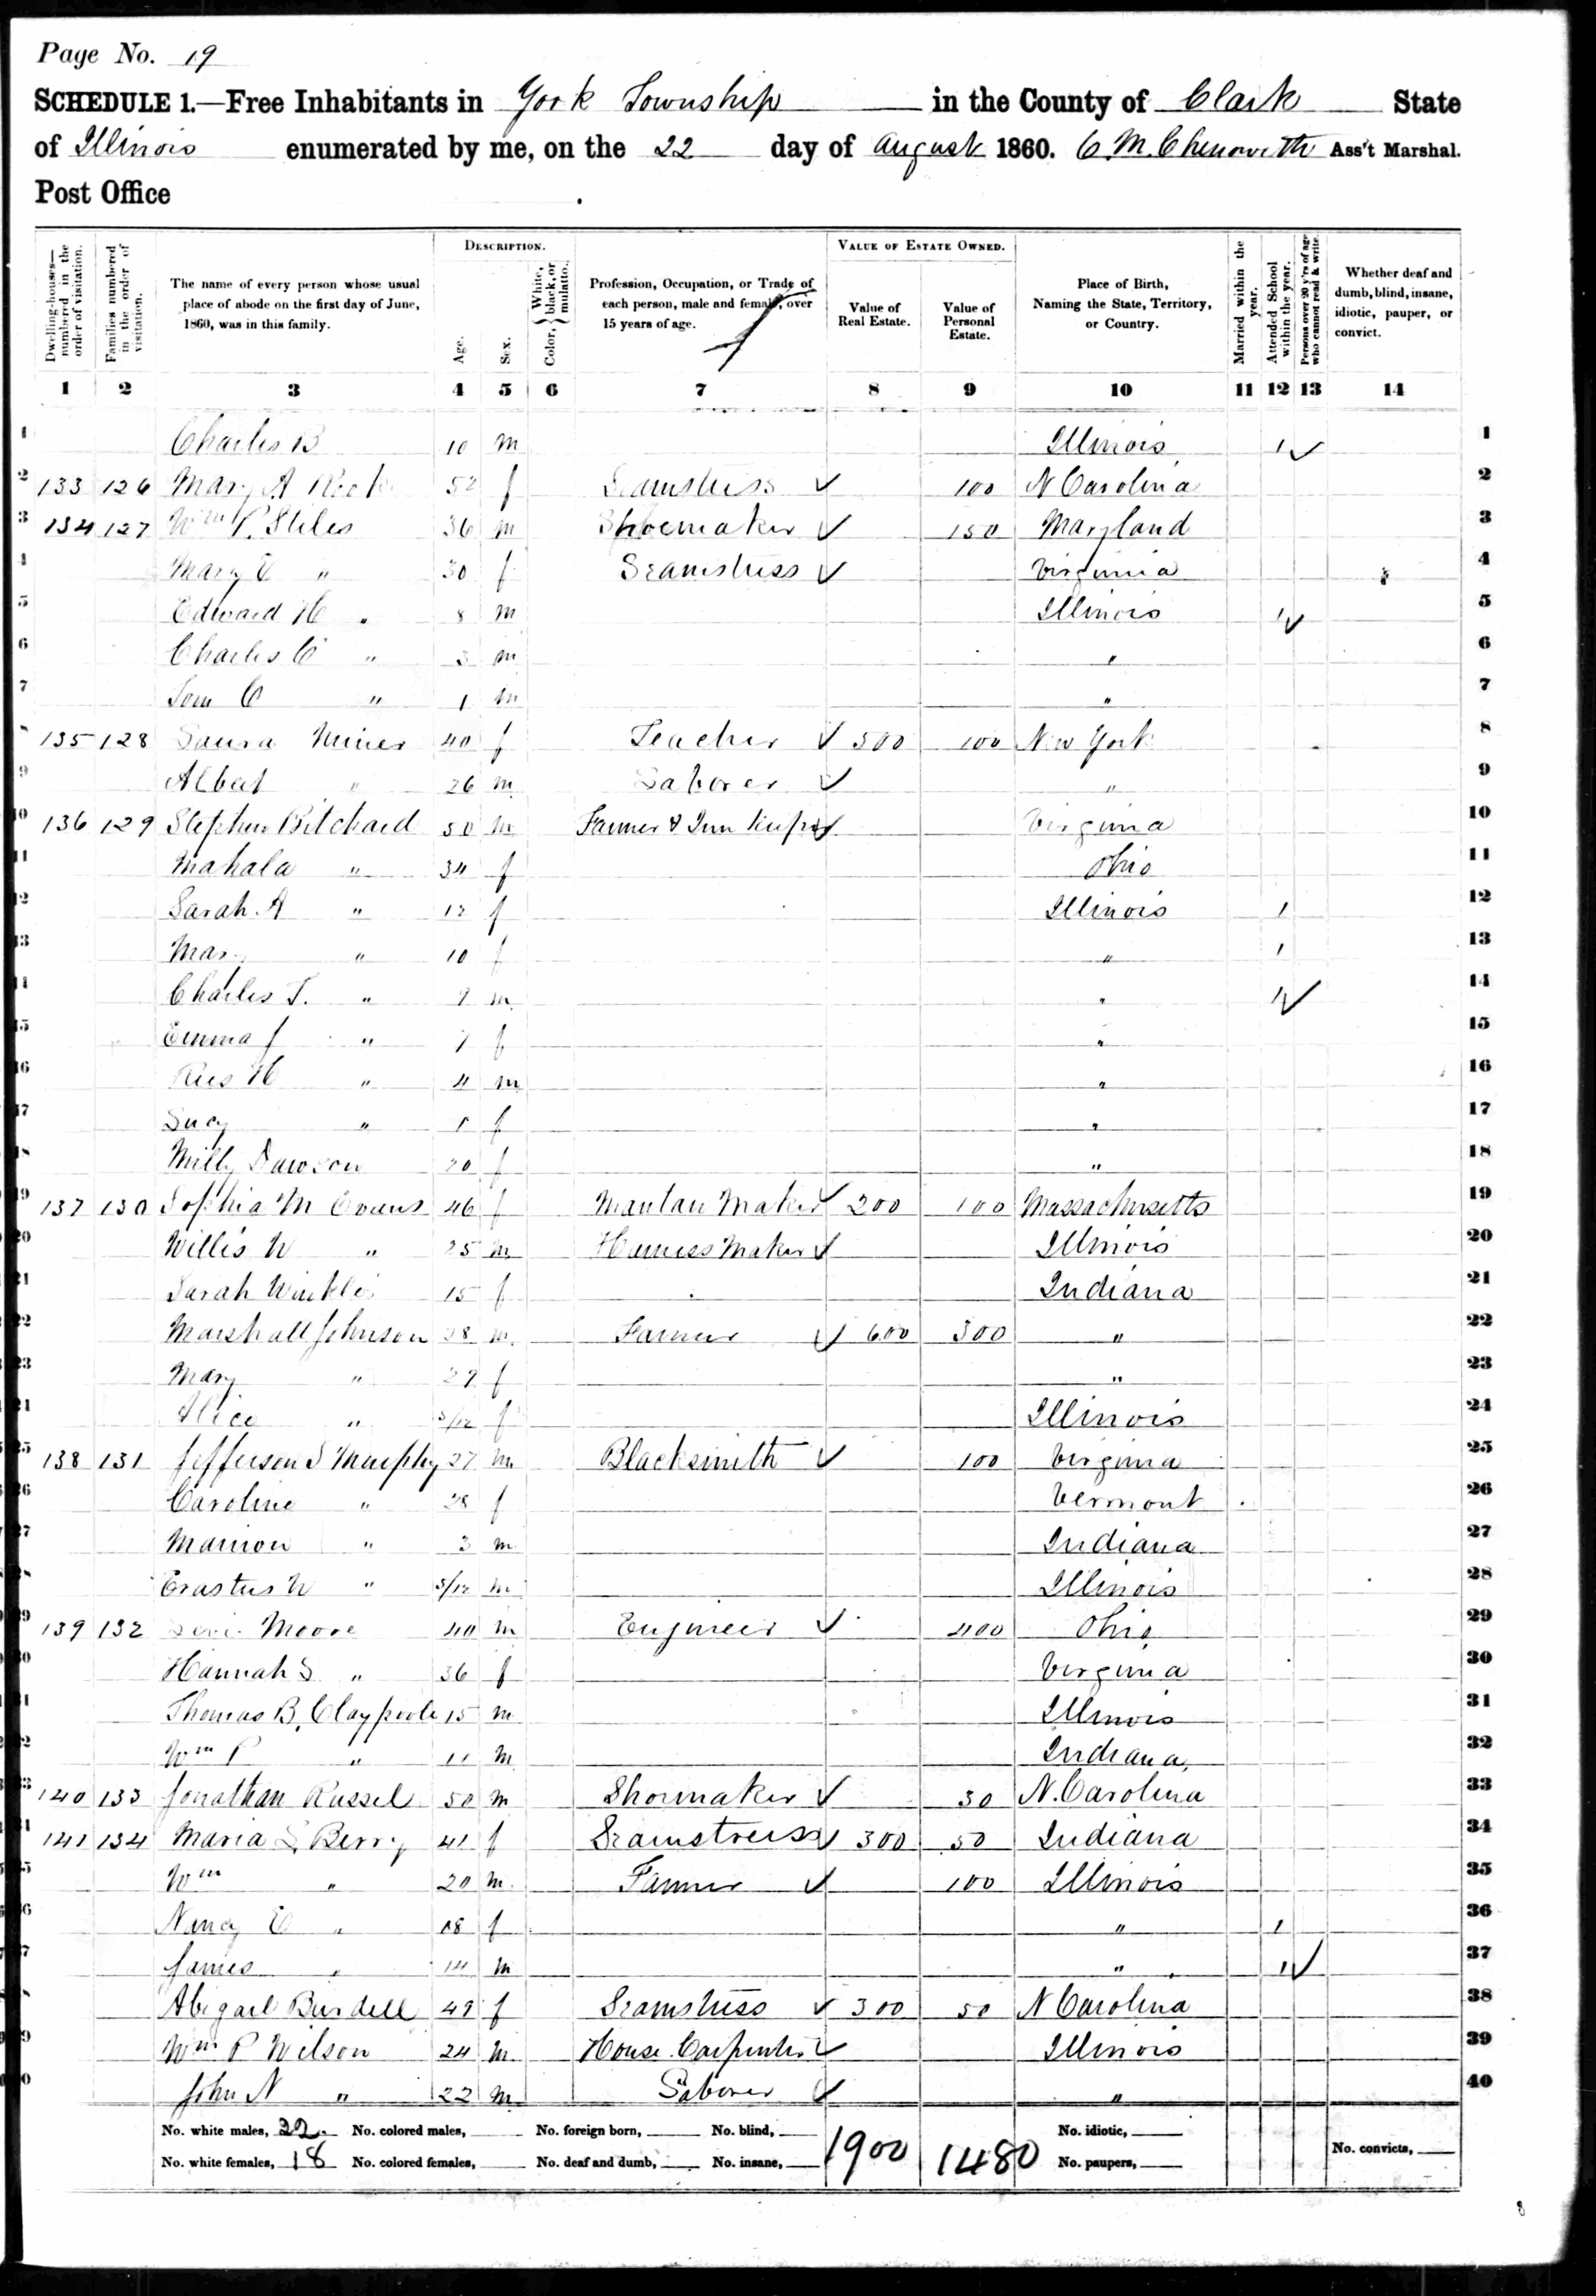 Page No. 19
SCHEDULE 1.—Free Inhabitants in York Township in the County of Clark State
of Illinois enumerated by me, on the 22 day of August 1860. C. M. Chenowith Ass't Marshal.
Post Office
Dwelling-houses— numbered in the order of visitation.
Families numbered in the order of visitation.
The name of every person whose usual place of abode on the first day of June, 1860, was in this family.
DESCRIPTION.
Age.
Sex.
Color, { White, black, or mulatto.
Profession, Occupation, or Trade of each person, male and female, over 15 years of age.
VALUE OF ESTATE OWNED.
Value of Real Estate.
Value of Personal Estate.
Place of Birth, Naming the State, Territory, or Country.
Married within the year.
Attended School within the year.
Persons over 20 y'rs of age who cannot read & write.
Whether deaf and dumb, blind, insane, idiotic, pauper, or convict.
1 2 3 4 5 6 7 8 9 10 11 12 13 14
1 Charles B 10 m Illinois 1 ✓ 1
2 133 126 Mary A 52 f Seamstress ✓ 100 N Carolina 2
3 134 127 Wm P. Stiles 36 m Shoemaker ✓ 150 Maryland 3
4 Mary E " 30 f Seamstress ✓ Virginia 4
5 Edward H " 8 m Illinois 1 ✓ 5
6 Charles C " 3 m " 6
7 Tom C " 1 m " 7
8 135 128 Laura Miner 40 f Teacher ✓ 500 100 New York 8
9 Albert " 26 m Laborer ✓ " 9
10 136 129 Stephen Pritchard 50 m Farmer & Inn Keeper ✓ Virginia 10
11 Mahala " 34 f Ohio 11
12 Sarah A " 12 f Illinois 1 12
13 Mary " 10 f " 1 13
14 Charles T. " 9 m " 1 ✓ 14
15 Emma J " 7 f " 15
16 Rus H " 4 m " 16
17 Lucy " 1 f " 17
18 Milly Dawson 20 f " 18
19 137 130 Sophia M Evans 46 f Mantau Maker ✓ 200 100 Massachusetts 19
20 Willis W " 25 m Harness Maker ✓ Illinois 20
21 Sarah Winkler 15 f Indiana 21
22 Marshall Johnson 28 m Farmer ✓ 600 300 " 22
23 Mary " 29 f " 23
24 Alice " 3/12 f Illinois 24
25 138 131 Jefferson S Murphy 27 m Blacksmith ✓ 100 Virginia 25
26 Caroline " 28 f Vermont 26
27 Marion " 3 m Indiana 27
28 Erastus W " 3/12 m Illinois 28
29 139 132 Levi Moore 40 m Engineer ✓ 400 Ohio 29
30 Hannah S " 36 f Virginia 30
31 Thomas B. Claypoole 15 m Illinois 31
32 Wm P " 11 m Indiana 32
33 140 133 Jonathan Russel 50 m Shoemaker ✓ 30 N. Carolina 33
34 141 134 Maria S. Berry 41 f Seamstress ✓ 300 50 Indiana 34
35 Wm " 20 m Farmer ✓ 100 Illinois 35
36 Nancy E " 18 f " 1 36
37 James " 14 m " 1 ✓ 37
38 Abigail Burdell 49 f Seamstress ✓ 300 50 N Carolina 38
39 Wm P Wilson 24 m House Carpenter ✓ Illinois 39
40 John N " 22 m Laborer ✓ " 40
No. white males, 22. No. colored males, No. foreign born, No. blind, 1900 1480 No. idiotic,
No. white females, 18 No. colored females, No. deaf and dumb, No. insane, No. paupers, No. convicts,
8